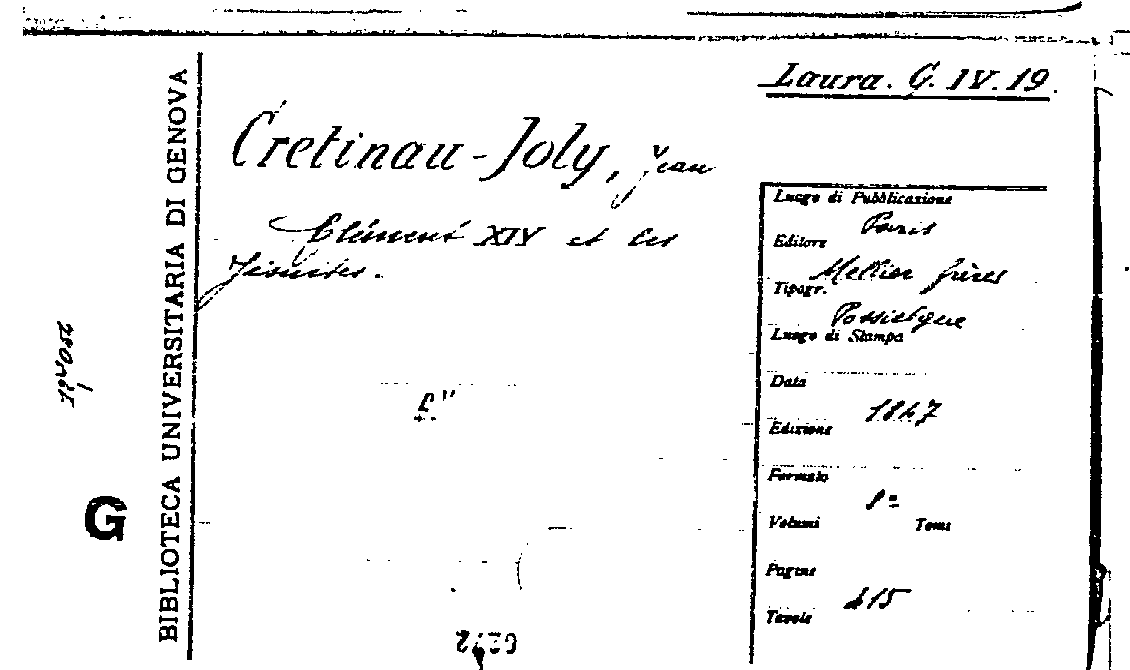 Laura. G. IV. 19.
BIBLIOTECA UNIVERSITARIA DI GENOVA
G
Cretinau-Joly, Jean
Clément XIV et les
Jésuites.
Luogo di Pubblicazione
Paris
Editore
Mellier frères
Tipogr.
Possielgue
Luogo di Stampa
Data
1847
Edizione
Formato
8°
Volumi Tomi
Pagine
415
Tavole